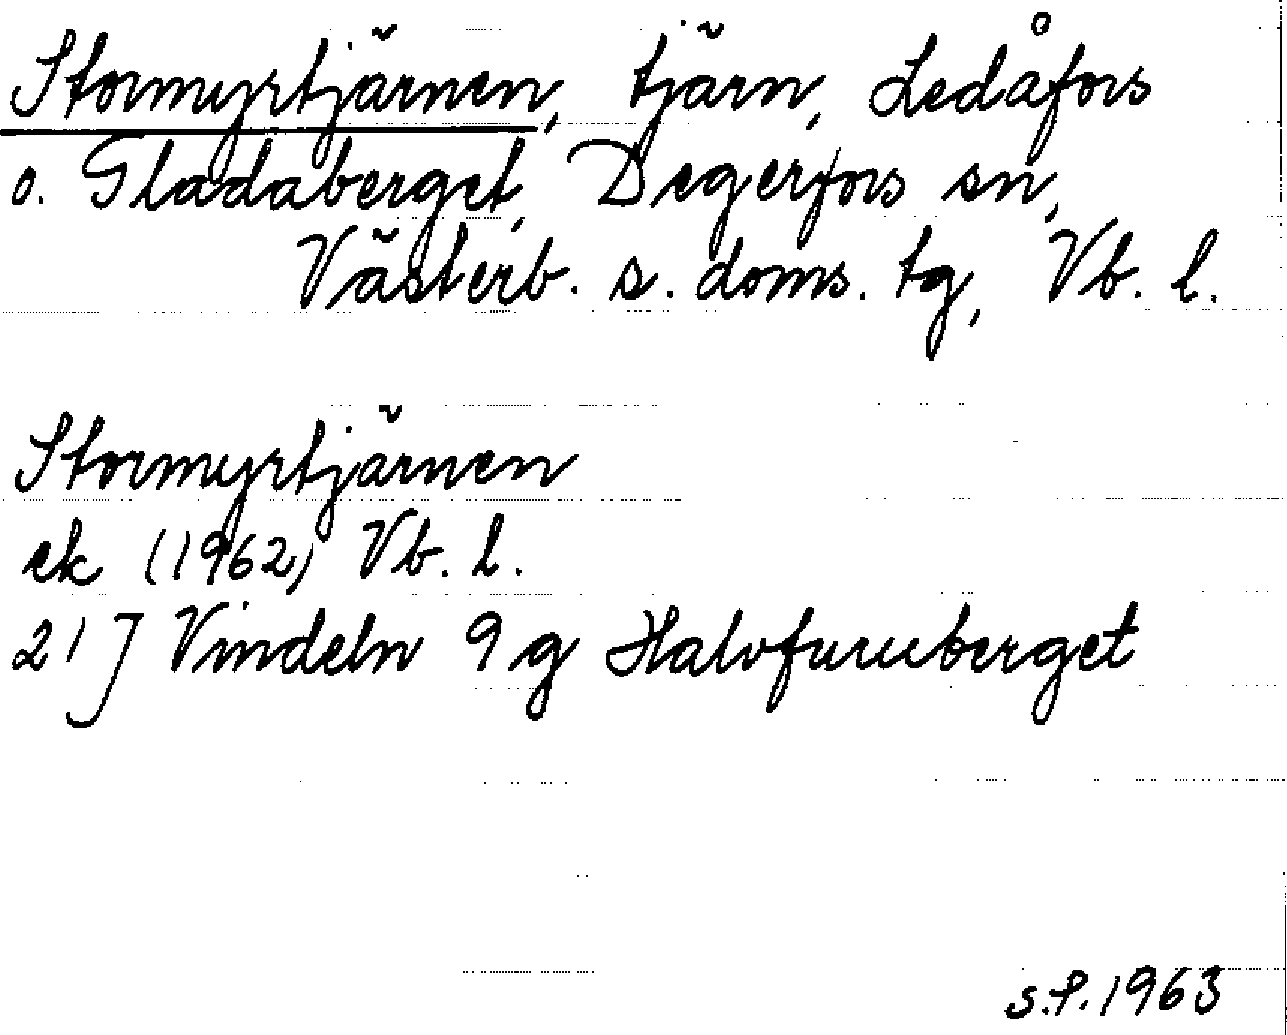 Stormyrtjärnen, tjärn, Ledåfors
o. Gladaberget, Degerfors sn,
Västerb. s. doms. tg, Vb. l.
Stormyrtjärnen
ek (1962) Vb. l.
21 J Vindeln 9 g Halvfuruberget
s.f. 1963